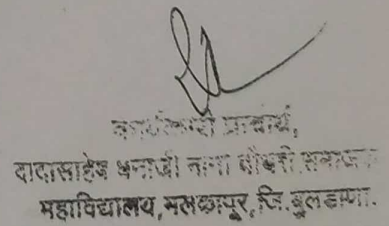 प्राचार्य,
दादासाहेब धनाजी नाना चौधरी समाजकार्य
महाविद्यालय, मलकापूर, जि. बुलडाणा.